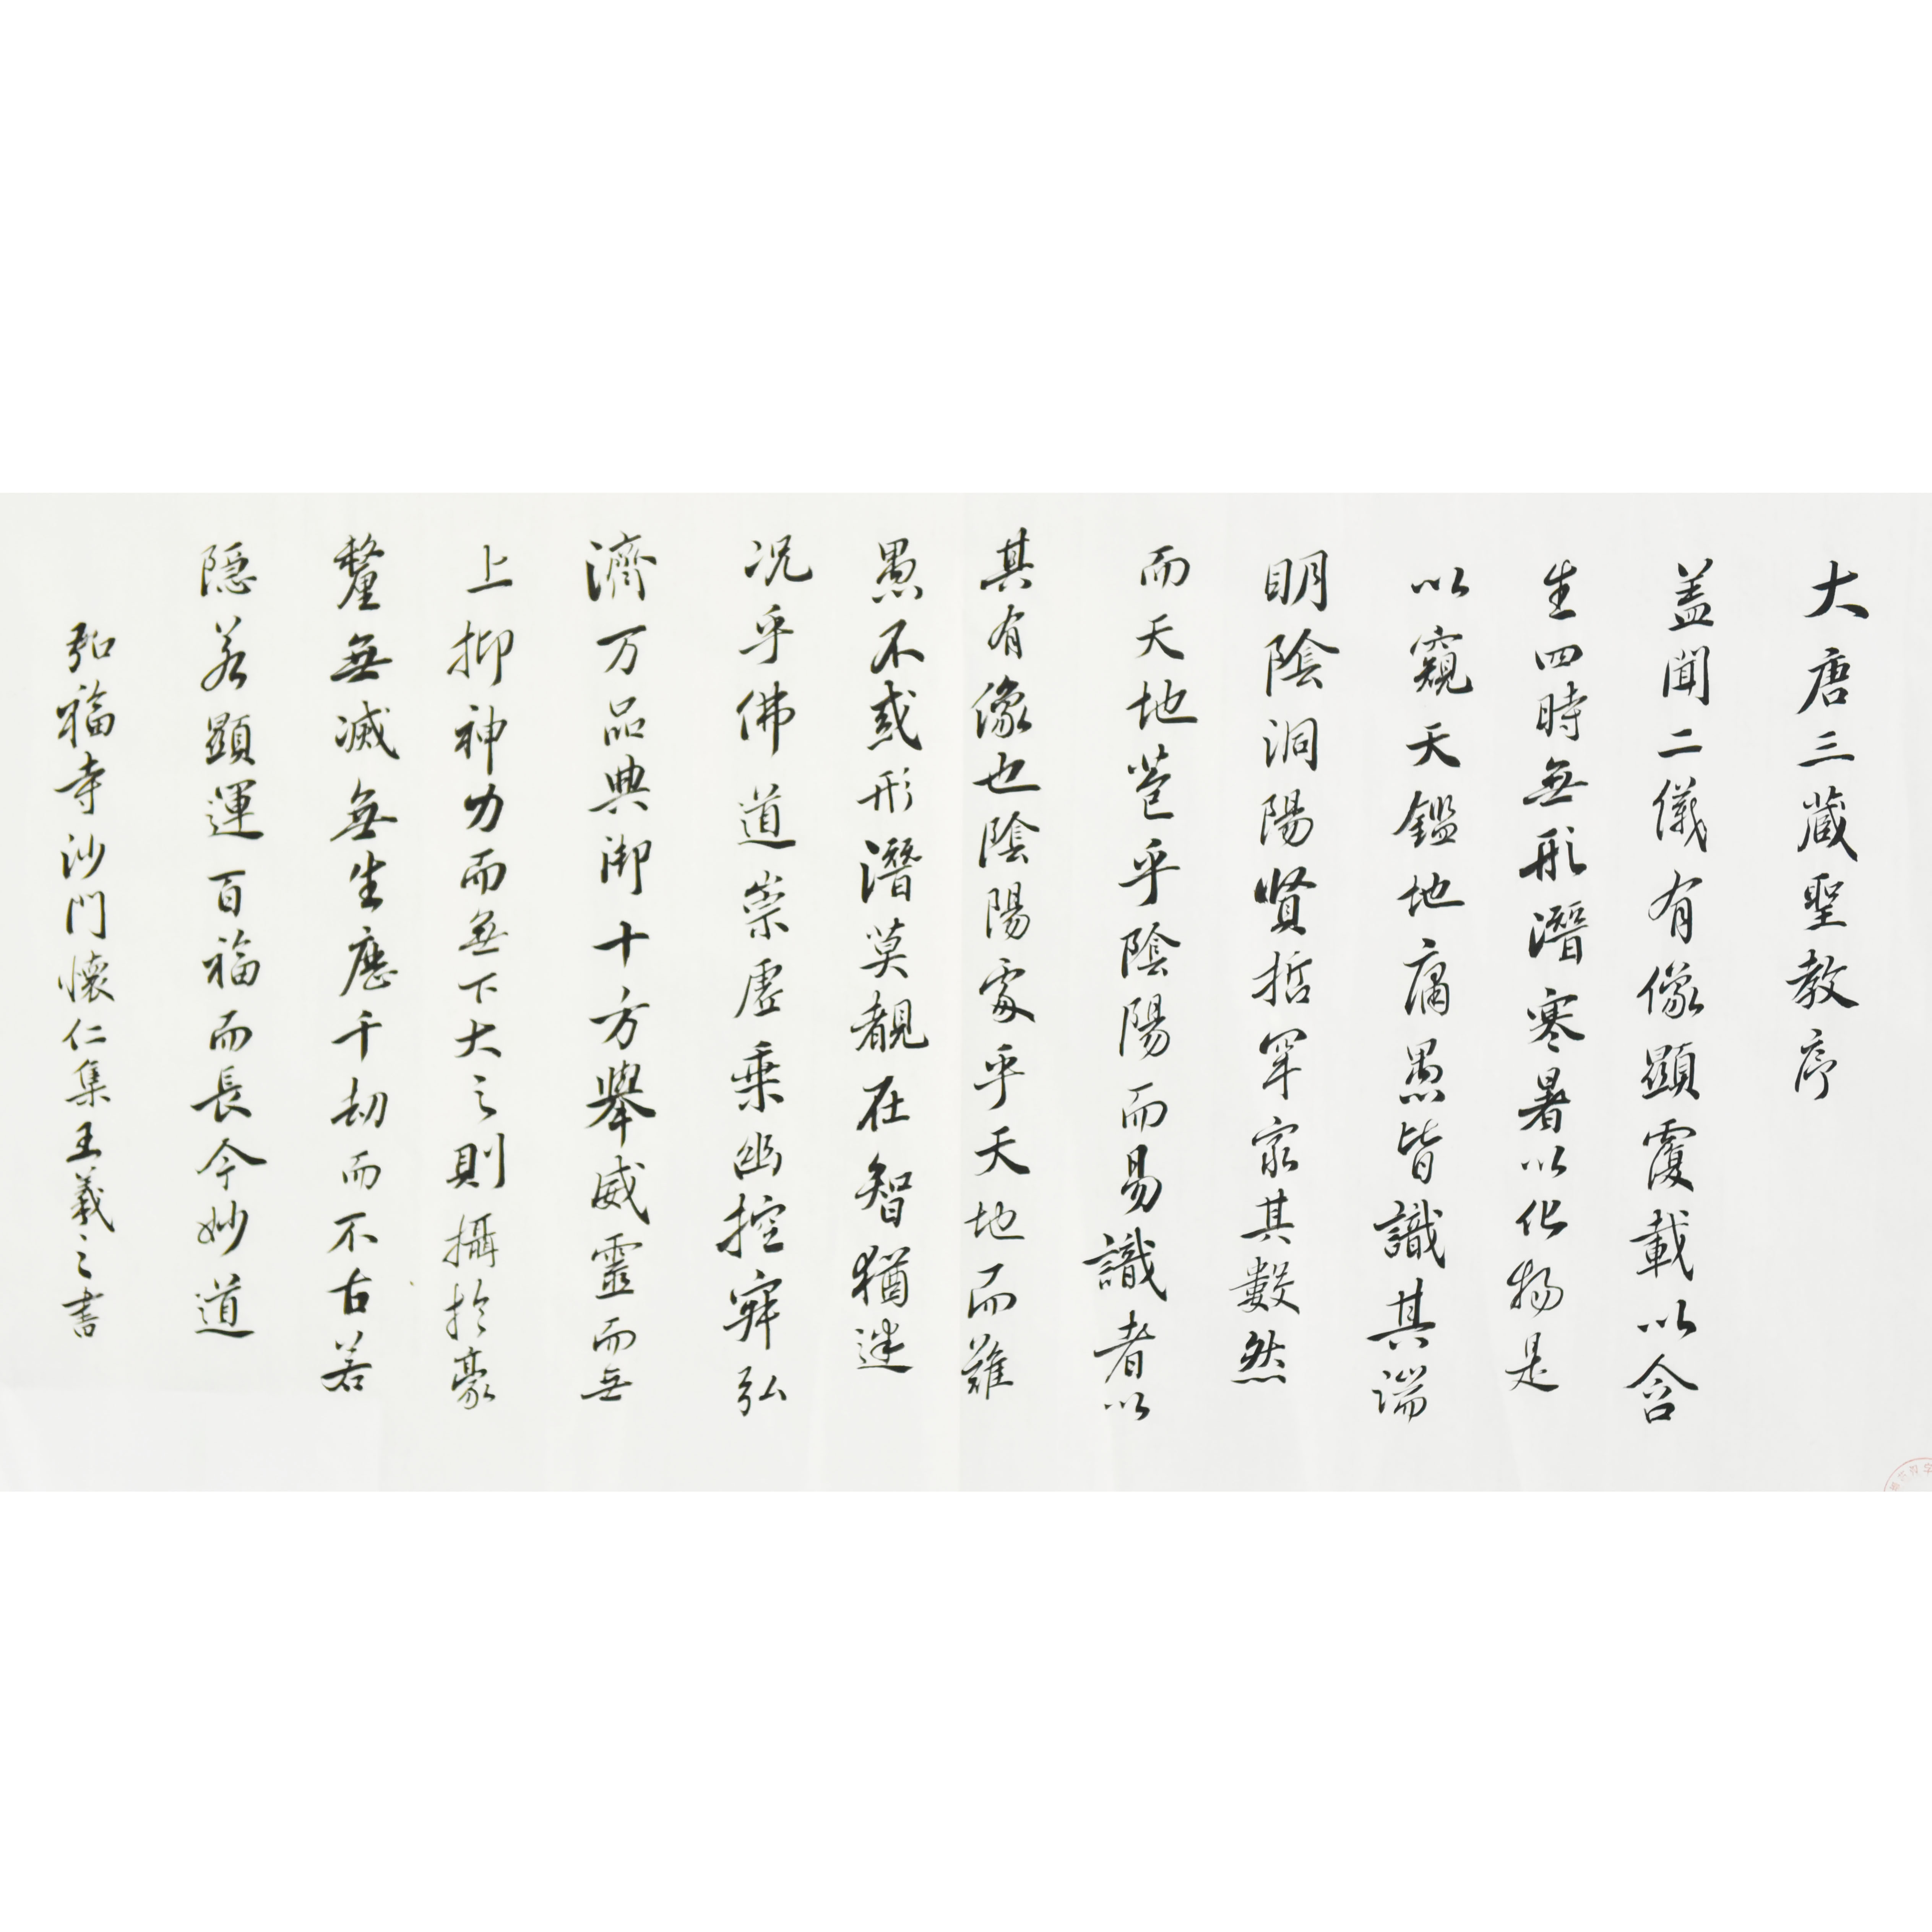 大唐三藏聖教序
蓋聞二儀有像顯覆載以含
生四時無形潛寒暑以化物是
以窺天鑑地庸愚皆識其端
明陰洞陽賢哲罕窮其數然
而天地苞乎陰陽而易識者以
其有像也陰陽處乎天地而難
愚不惑形潛莫覩在智猶迷
況乎佛道崇虛乗幽控寂弘
濟万品典御十方舉威靈而無
上抑神力而無下大之則攝於豪
釐無滅無生歷千劫而不古若
隱若顯運百福而長今妙道
弘福寺沙門懷仁集王羲之書